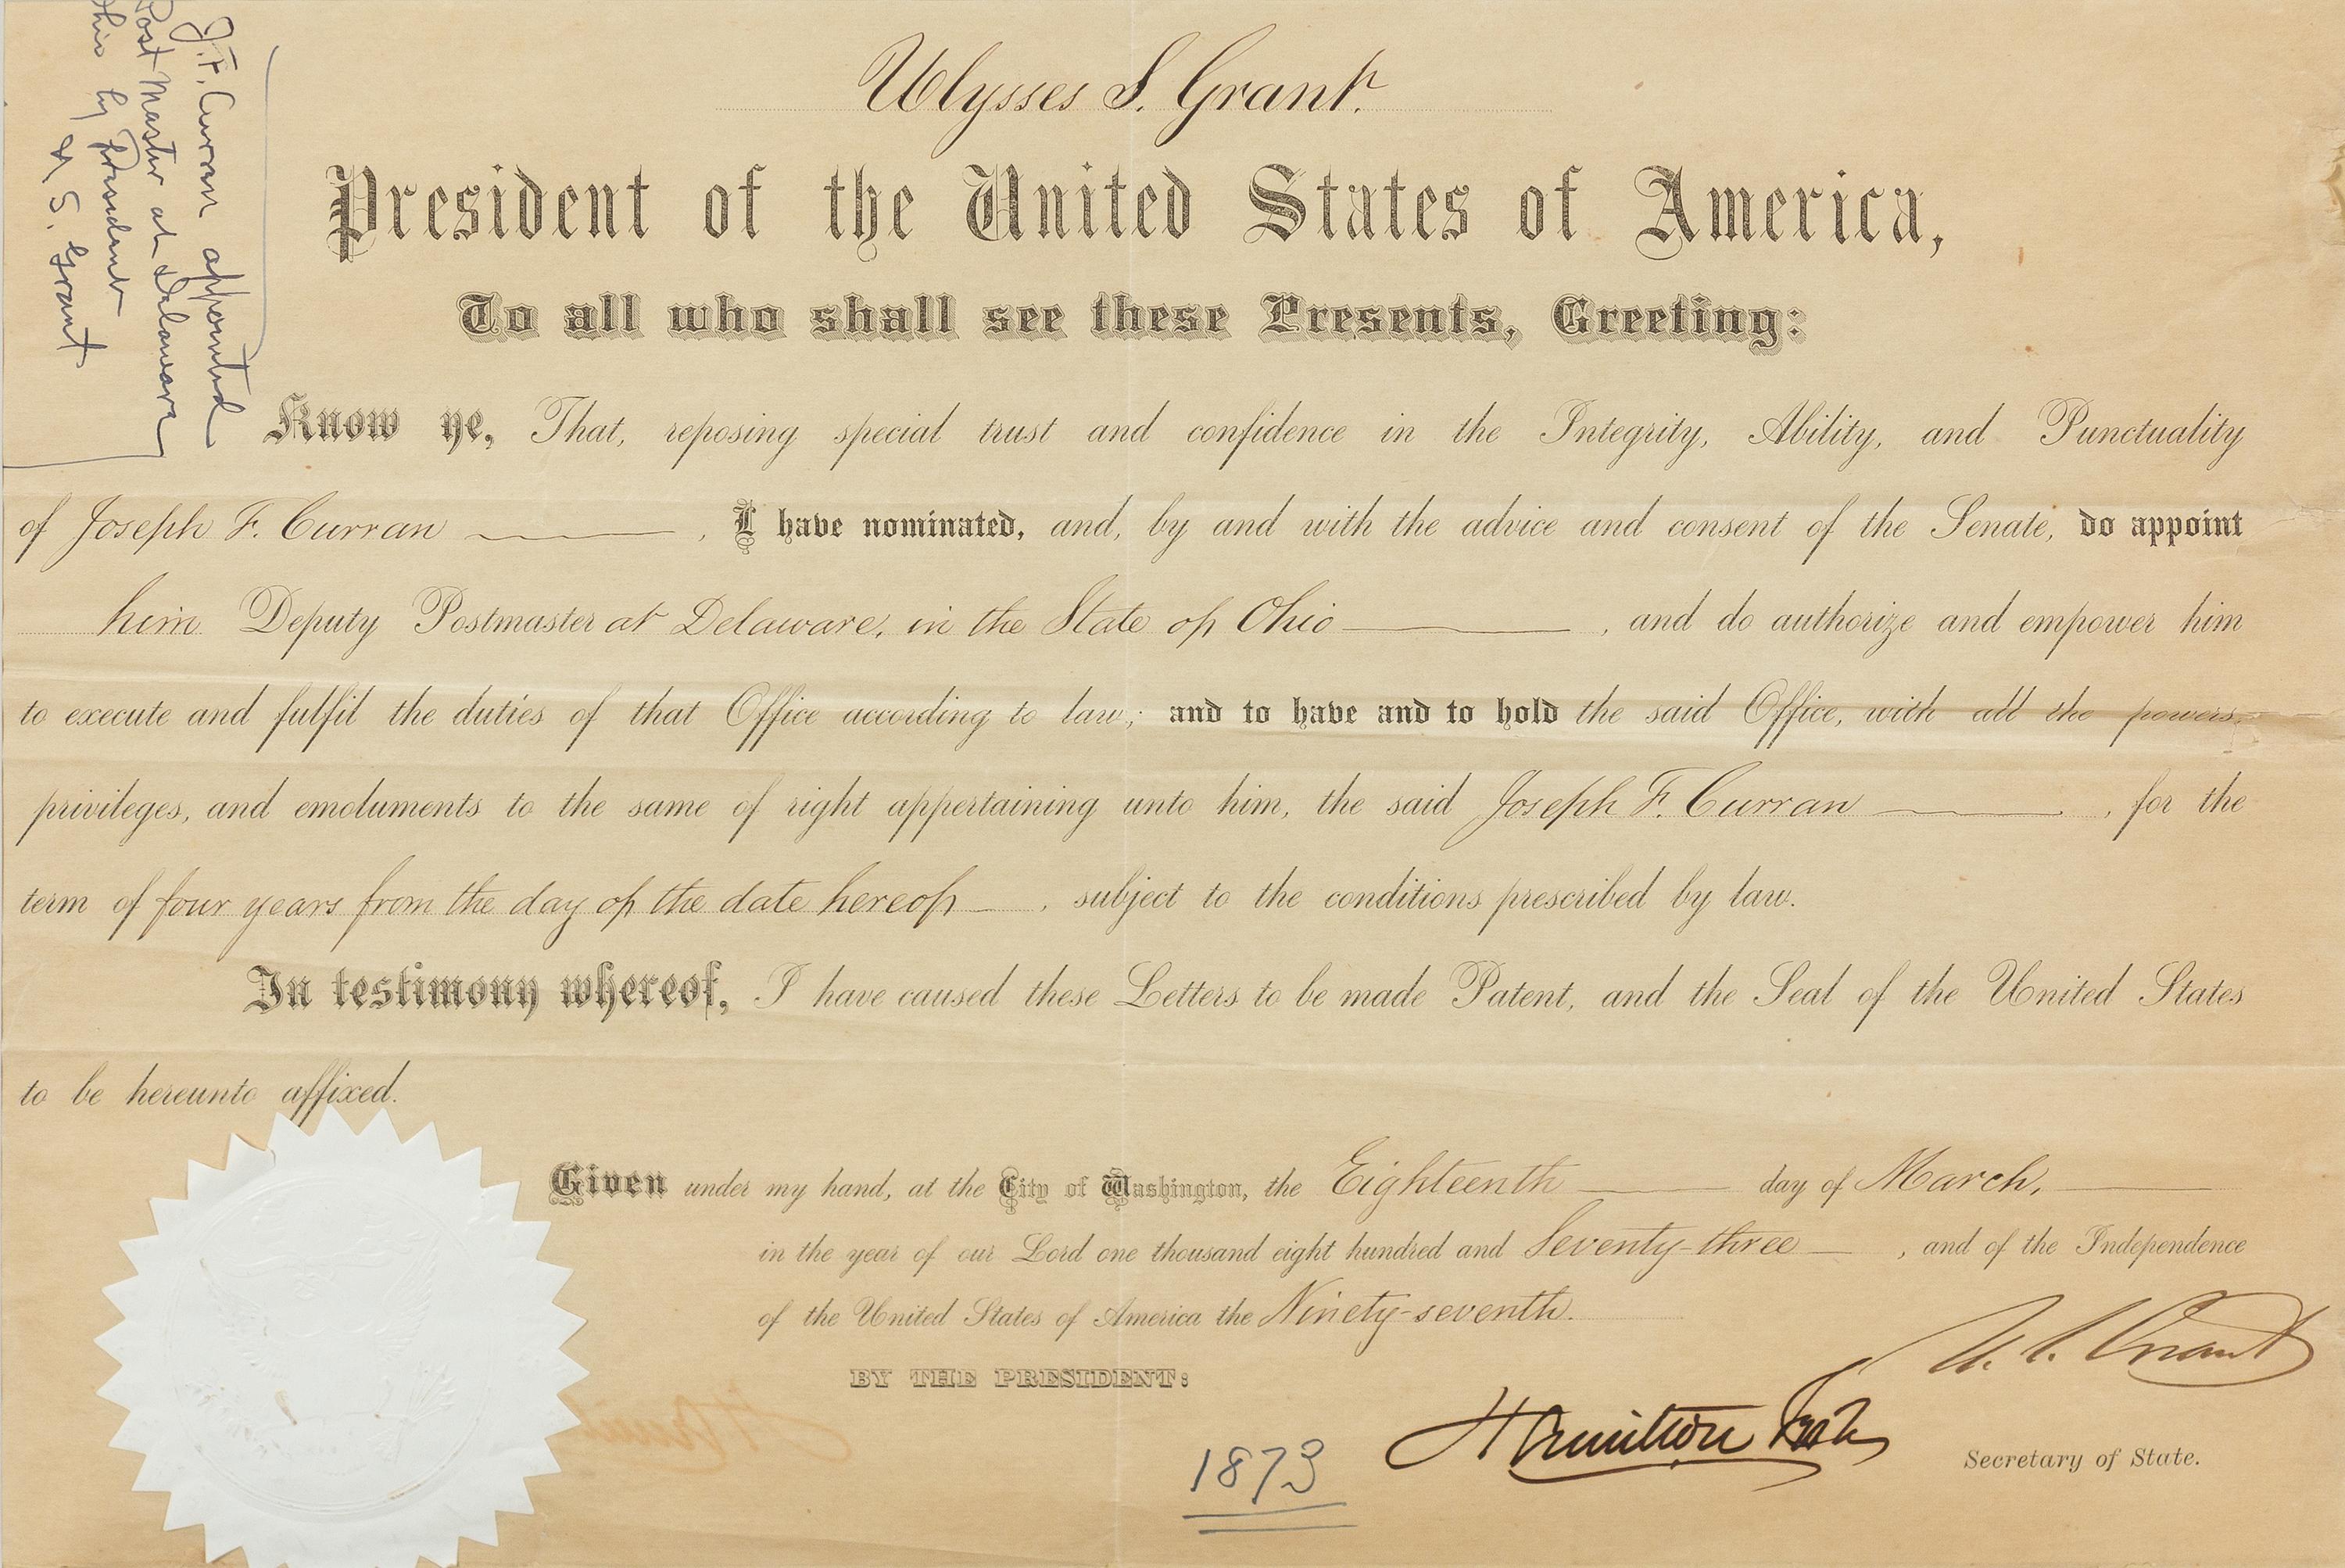 J. F. Curran appointed
Post Master at Delaware
Ohio by President
U S. Grant
Ulysses S. Grant.
President of the United States of America,
To all who shall see these Presents, Greeting:
Know ye, That, reposing special trust and confidence in the Integrity, Ability, and Punctuality
of Joseph F. Curran , I have nominated, and, by and with the advice and consent of the Senate, do appoint
him Deputy Postmaster at Delaware, in the State of Ohio , and do authorize and empower him
to execute and fulfil the duties of that Office according to law; and to have and to hold the said Office, with all the powers,
privileges, and emoluments to the same of right appertaining unto him, the said Joseph F. Curran , for the
term of four years from the day of the date hereof , subject to the conditions prescribed by law.
In testimony whereof, I have caused these Letters to be made Patent, and the Seal of the United States
to be hereunto affixed.
Given under my hand, at the City of Washington, the Eighteenth day of March,
in the year of our Lord one thousand eight hundred and Seventy-three , and of the Independence
of the United States of America the Ninety-seventh.
U. S. Grant
BY THE PRESIDENT:
Hamilton Fish
Secretary of State.
1873